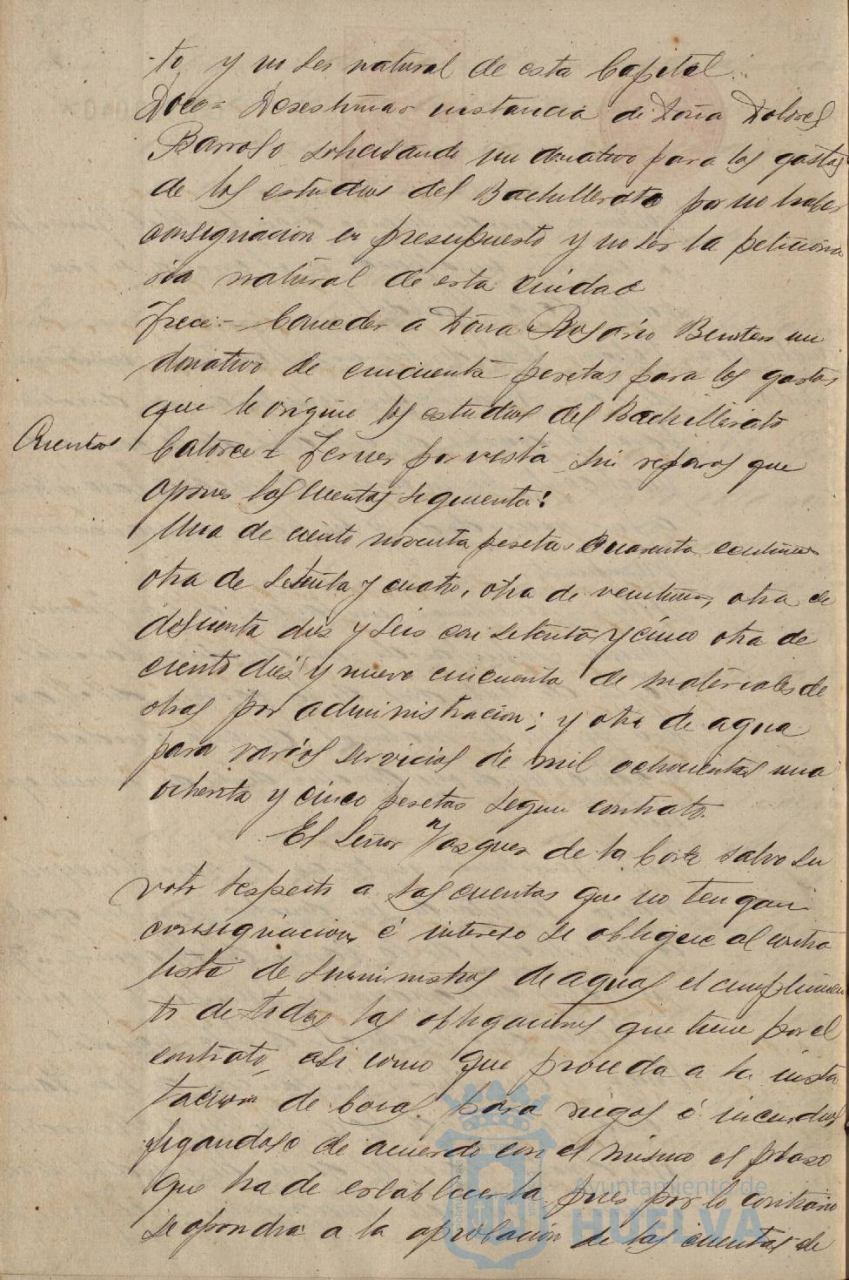 to y no ser natural de esta Capital.
Doce= Desestimar instancia de Doña Dolores
Barroso solicitando un donativo para los gastos
de los estudios del Bachillerato por no haber
consignacion en presupuesto y no ser la peticiona
ria natural de esta ciudad
Trece.- Conceder a Doña Rosario Benites un
donativo de cincuenta pesetas para los gastos
que le origine los estudios del Bachillerato
Cuentas
Catorce= Tener por vista sin reparos que
oponer las cuentas siguientes:
Una de ciento noventa pesetas cuarenta centimos
otra de setenta y cuatro, otra de veintiuna, otra de
doscientas dies y seis con setenta y cinco otra de
ciento dies y nueve cincuenta de materiales de
obras por administracion; y otra de agua
para varios servicios de mil ochocientas una
ochenta y cinco pesetas segun contrato.
El Señor Vasques de la Corte salvo su
voto respecto a las cuentas que no tengan
consignacion é intereso se obligue al contra
tista de suministros de aguas el cumplimien
to de todas las obligaciones que tiene por el
contrato, asi como que proceda a la insta
lacion de bocas para riegos é incendios
fijandose de acuerdo con el mismo el plazo
que ha de establecerla pues por lo contrario
se opondra a la aprobacion de las cuentas de
Ayuntamiento de
HUELVA